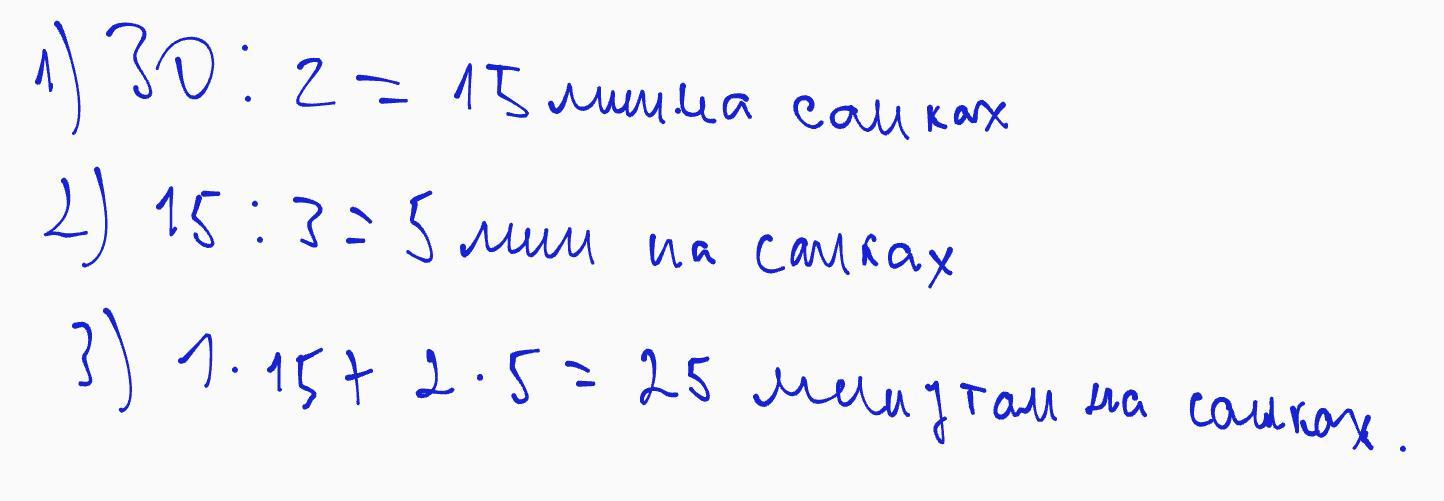 1) 30 : 2 = 15 мин.на санках
2) 15 : 3 = 5 мин на санках
3) 1 · 15 + 2 · 5 = 25 минутам на санках.